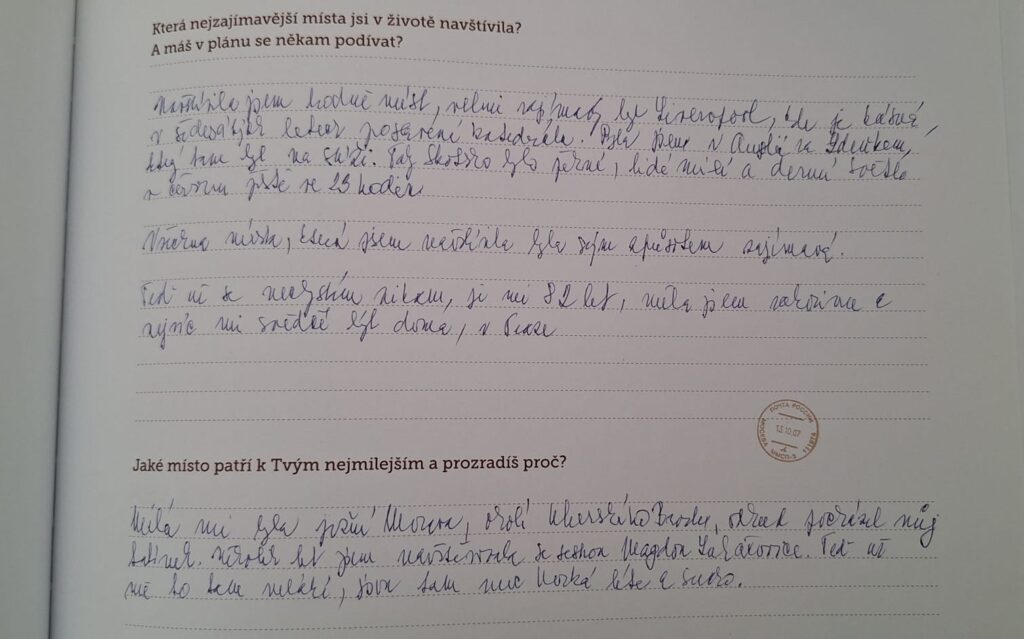 Která nejzajímavější místa jsi v životě navštívila?
A máš v plánu se někam podívat?
Navštívila jsem hodně míst, velmi zajímavý byl Liverpool, kde je krásná,
v šedesátých letech postavená katedrála. Byla jsem v Anglii za Zdeňkem,
když tam byl na stáži. Taky Skotsko bylo pěkné, lidé milí a denní světlo
v červnu ještě ve 23 hodin.
Všechna místa, která jsem navštívila byla svým způsobem zajímavá.
Teď už se nechystám nikam, je mi 82 let, měla jsem a
nejvíc mi svědčí být doma, v Praze
ПОЧТА РОССИИ
МОСКВА
13.10.07
Jaké místo patří k Tvým nejmilejším a prozradíš proč?
Milá mi byla jižní Morava, okolí Uherského Brodu, odkud pocházel můj
tatínek. Několik let jsem navštěvovala se sestrou Magdou Teď už
mě to tam neláká, jsou tam moc horká léta a sucho.